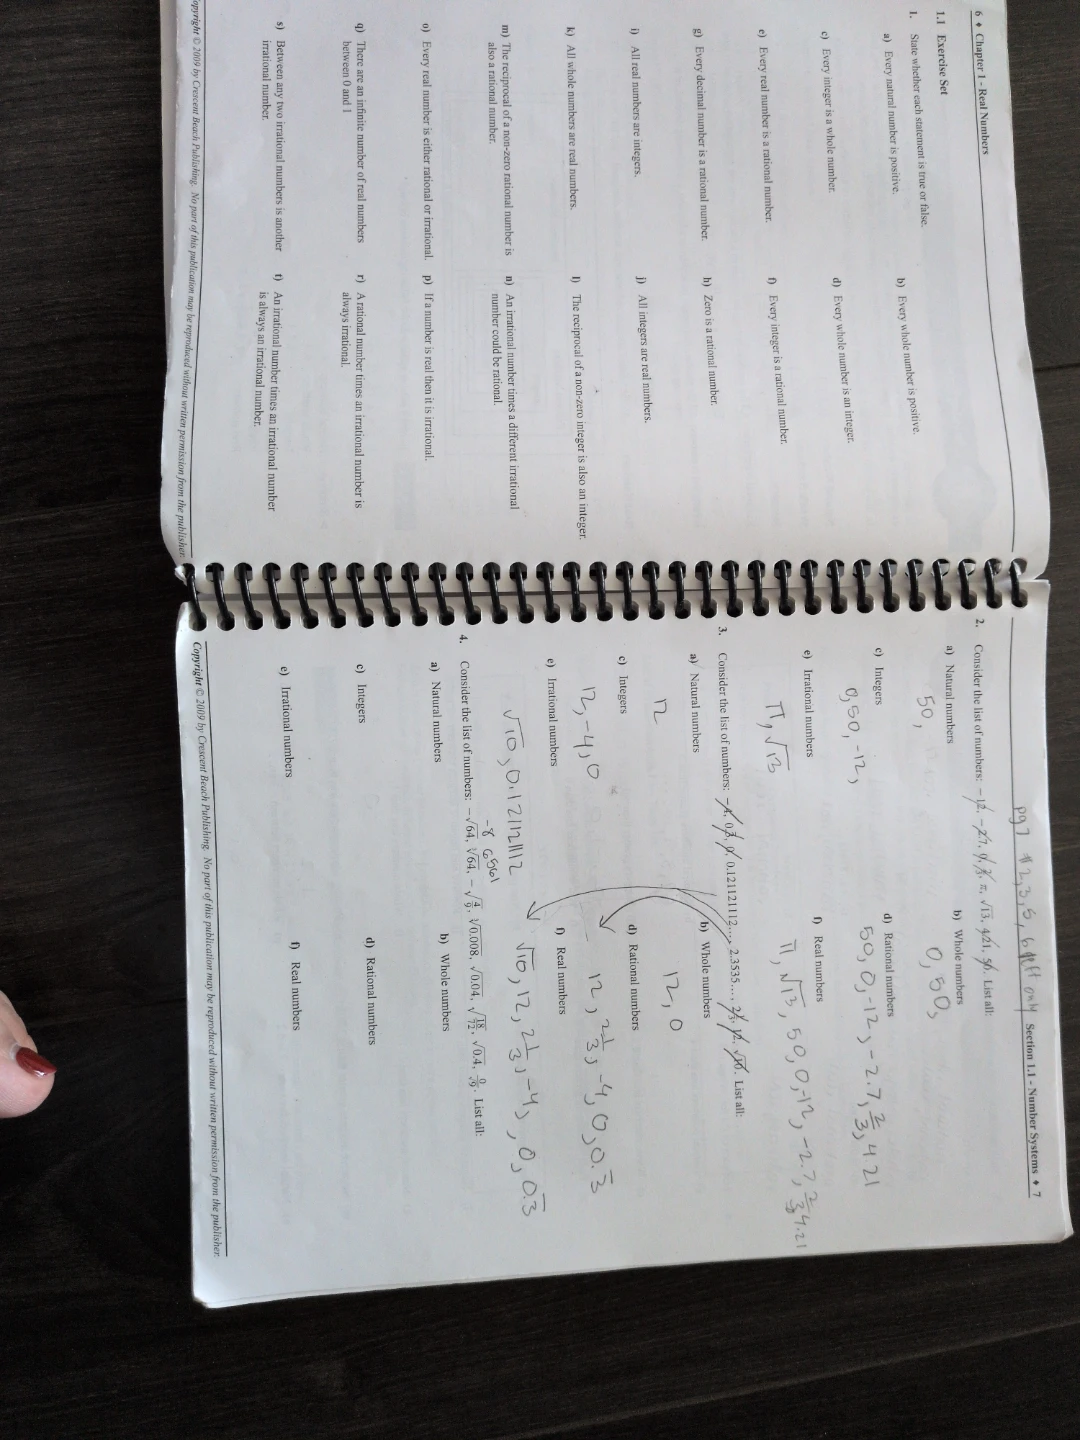 6 ♦ Chapter 1 - Real Numbers
1.1 Exercise Set
1. State whether each statement is true or false.
a) Every natural number is positive.
b) Every whole number is positive.
c) Every integer is a whole number.
d) Every whole number is an integer.
e) Every real number is a rational number.
f) Every integer is a rational number.
g) Every decimal number is a rational number.
h) Zero is a rational number.
i) All real numbers are integers.
j) All integers are real numbers.
k) All whole numbers are real numbers.
l) The reciprocal of a non-zero integer is also an integer.
m) The reciprocal of a non-zero rational number is
also a rational number.
n) An irrational number times a different irrational
number could be rational.
o) Every real number is either rational or irrational.
p) If a number is real then it is irrational.
q) There are an infinite number of real numbers
between 0 and 1
r) A rational number times an irrational number is
always irrational.
s) Between any two irrational numbers is another
irrational number.
t) An irrational number times an irrational number
is always an irrational number.
opyright © 2009 by Crescent Beach Publishing. No part of this publication may be reproduced without written permission from the publisher.
pg7 #2,3,5,6 left only
Section 1.1 - Number Systems ♦ 7
2. Consider the list of numbers: −12, −2.7, 0, 2/3, π, √13, 4.21, 50. List all:
a) Natural numbers
50,
b) Whole numbers
0, 50,
c) Integers
0, 50, -12,
d) Rational numbers
50, 0, -12, -2.7, 2/3, 4.21
e) Irrational numbers
π, √13
f) Real numbers
π, √13, 50, 0, -12, -2.7, 2/3, 4.21
3. Consider the list of numbers: −4, 0.3̅, 0, 0.121121112..., 2.3535..., 2 1/3, 12, √10. List all:
a) Natural numbers
12
b) Whole numbers
12, 0
c) Integers
12, -4, 0
d) Rational numbers
12, 2 1/3, -4, 0, 0.3̅
e) Irrational numbers
√10, 0.121121112
f) Real numbers
√10, 12, 2 1/3, -4, , 0, 0.3̅
-8 6561
4. Consider the list of numbers: −√64, ∛64, −√(4/9), ∛0.008, √0.04, √(18/72), √0.4, 0/√9. List all:
a) Natural numbers
b) Whole numbers
c) Integers
d) Rational numbers
e) Irrational numbers
f) Real numbers
Copyright © 2009 by Crescent Beach Publishing. No part of this publication may be reproduced without written permission from the publisher.